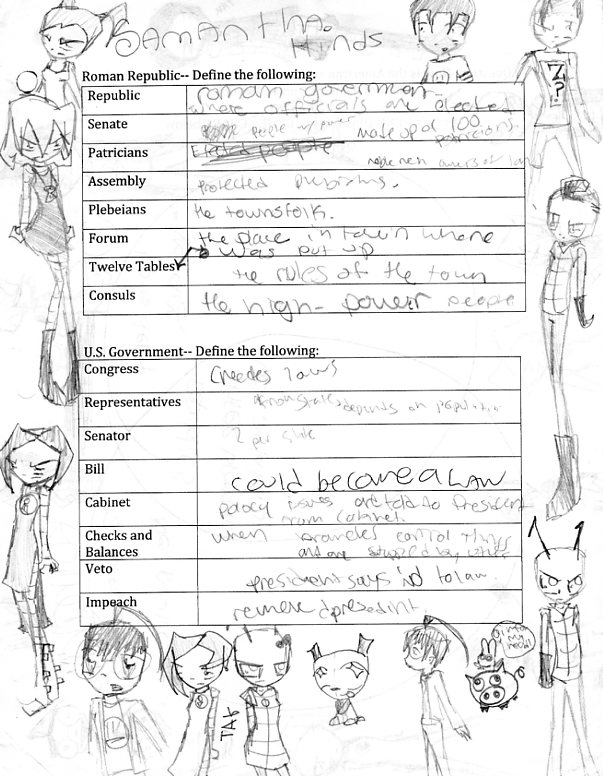 SAMANTHA.
Hinds
Roman Republic-- Define the following:
Republic
roman governmen-
where officials are elected
Senate
people w/ power made up of 100
patricians.
Patricians
people
Assembly
protected Plebians.
Plebeians
the townsfolk.
Forum
the place in town where
was put up
Twelve Tables
the rules of the town
Consuls
the high-power people
U.S. Government-- Define the following:
Congress
Creates laws
Representatives
depends on population
Senator
2 per state
Bill
could become a LAW
Cabinet
issues are told to President
from cabinet.
Checks and
Balances
when branches control things
and are stopped by
Veto
president says no to law
Impeach
remove
Z?
TAK
my
head!